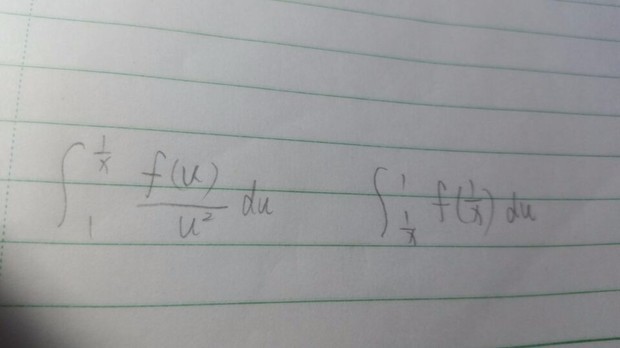 ∫_1^{1/x} f(u)/u² du    ∫_{1/x}^1 f(1/x) du